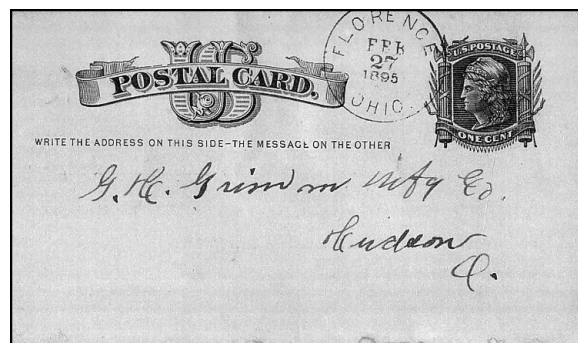 US
POSTAL CARD.
FLORENCE
FEB
27
1895
OHIO
U.S. POSTAGE
ONE CENT
WRITE THE ADDRESS ON THIS SIDE-THE MESSAGE ON THE OTHER
G. H. Grimm Mfg Co.
Hudson
O.